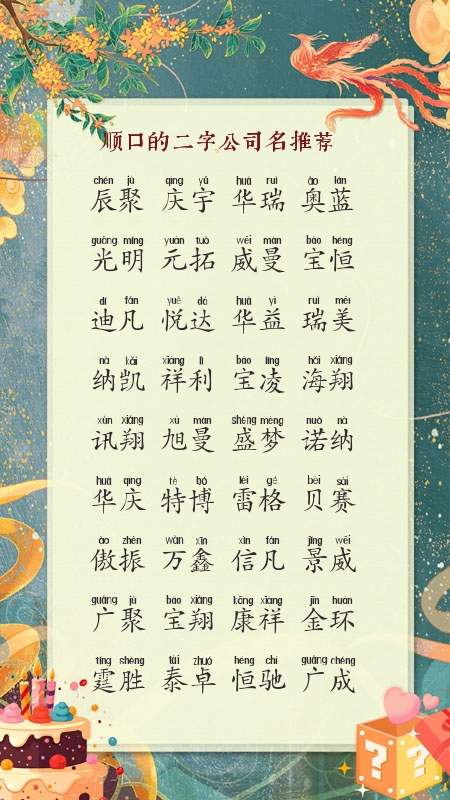 顺口的二字公司名推荐
chén jù qìng yǔ huá ruì ào lán
辰聚 庆宇 华瑞 奥蓝
guāng míng yuán tuò wēi màn bǎo héng
光明 元拓 威曼 宝恒
dí fán yuè dá huá yì ruì měi
迪凡 悦达 华益 瑞美
nà kǎi xiáng lì bǎo líng hǎi xiáng
纳凯 祥利 宝凌 海翔
xùn xiáng xù màn shèng mèng nuò nà
讯翔 旭曼 盛梦 诺纳
huá qìng tè bó léi gé bèi sài
华庆 特博 雷格 贝赛
ào zhèn wàn xīn xìn fán jǐng wēi
傲振 万鑫 信凡 景威
guǎng jù bǎo xiáng kāng xiáng jīn huán
广聚 宝翔 康祥 金环
tíng shèng tài zhuó héng chí guǎng chéng
霆胜 泰卓 恒驰 广成
? ?